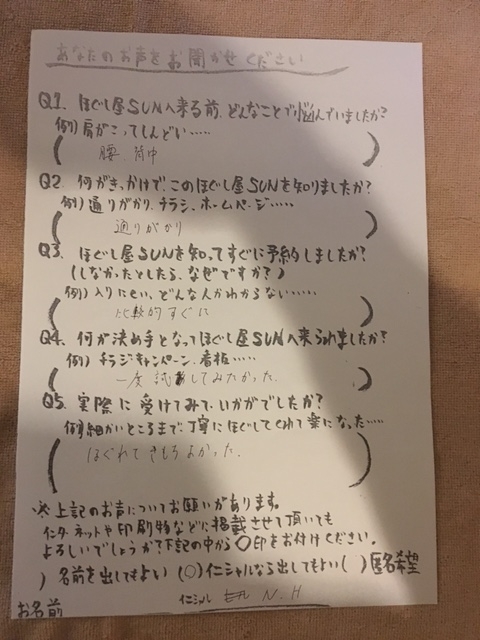 あなたのお声をお聞かせください
Q1. ほぐし屋SUNへ来る前、どんなことで悩んでいましたか?
例)肩がこってしんどい‥‥‥
( 腰 背中 )
Q2. 何がきっかけで、このほぐし屋SUNを知りましたか?
例)通りがかり、チラシ、ホームページ‥‥‥
( 通りがかり )
Q3. ほぐし屋SUNを知ってすぐに予約しましたか?
(しなかったとしたら、なぜですか?)
例)入りにくい、どんな人かわからない‥‥‥
( 比較的すぐに )
Q4. 何が決め手となってほぐし屋SUNへ来られましたか?
例)チラシキャンペーン、看板‥‥‥
( 一度試してみたかった。 )
Q5. 実際に受けてみていかがでしたか?
例)細かいところまで、丁寧にほぐしてくれて楽になった‥‥‥
( ほぐれてきもちよかった。 )
※上記のお声についてお願いがあります。
インターネットや印刷物などに掲載させて頂いても
よろしいでしょうか?下記の中から○印をお付けください。
) 名前を出してもよい (○)イニシャルなら出してもよい ( )匿名希望
お名前 イニシャル N.H